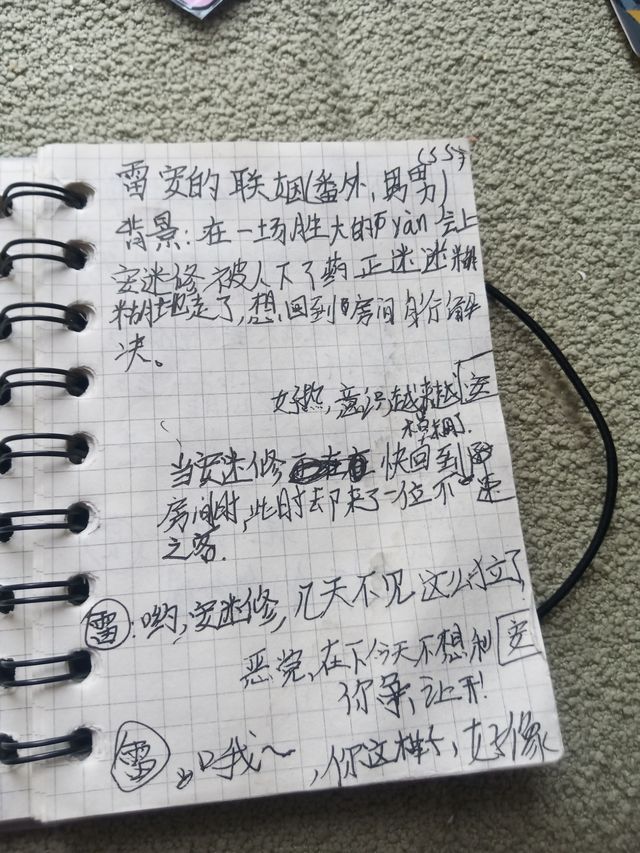 雷安的联姻(番外,男男)
背景:在一场胜大的yàn会上
安迷修被人下了药正迷迷糊
糊地走了,想回到房间自行解
决。
好热,意识越来越 安
模糊.
当安迷修快回到
房间时,此时却来了一位不速
之客.
雷:哟,安迷修,几天不见这么拉了
恶党,在下今天不想和 安
你争,让开!
雷 。哦~,你这样子,好像